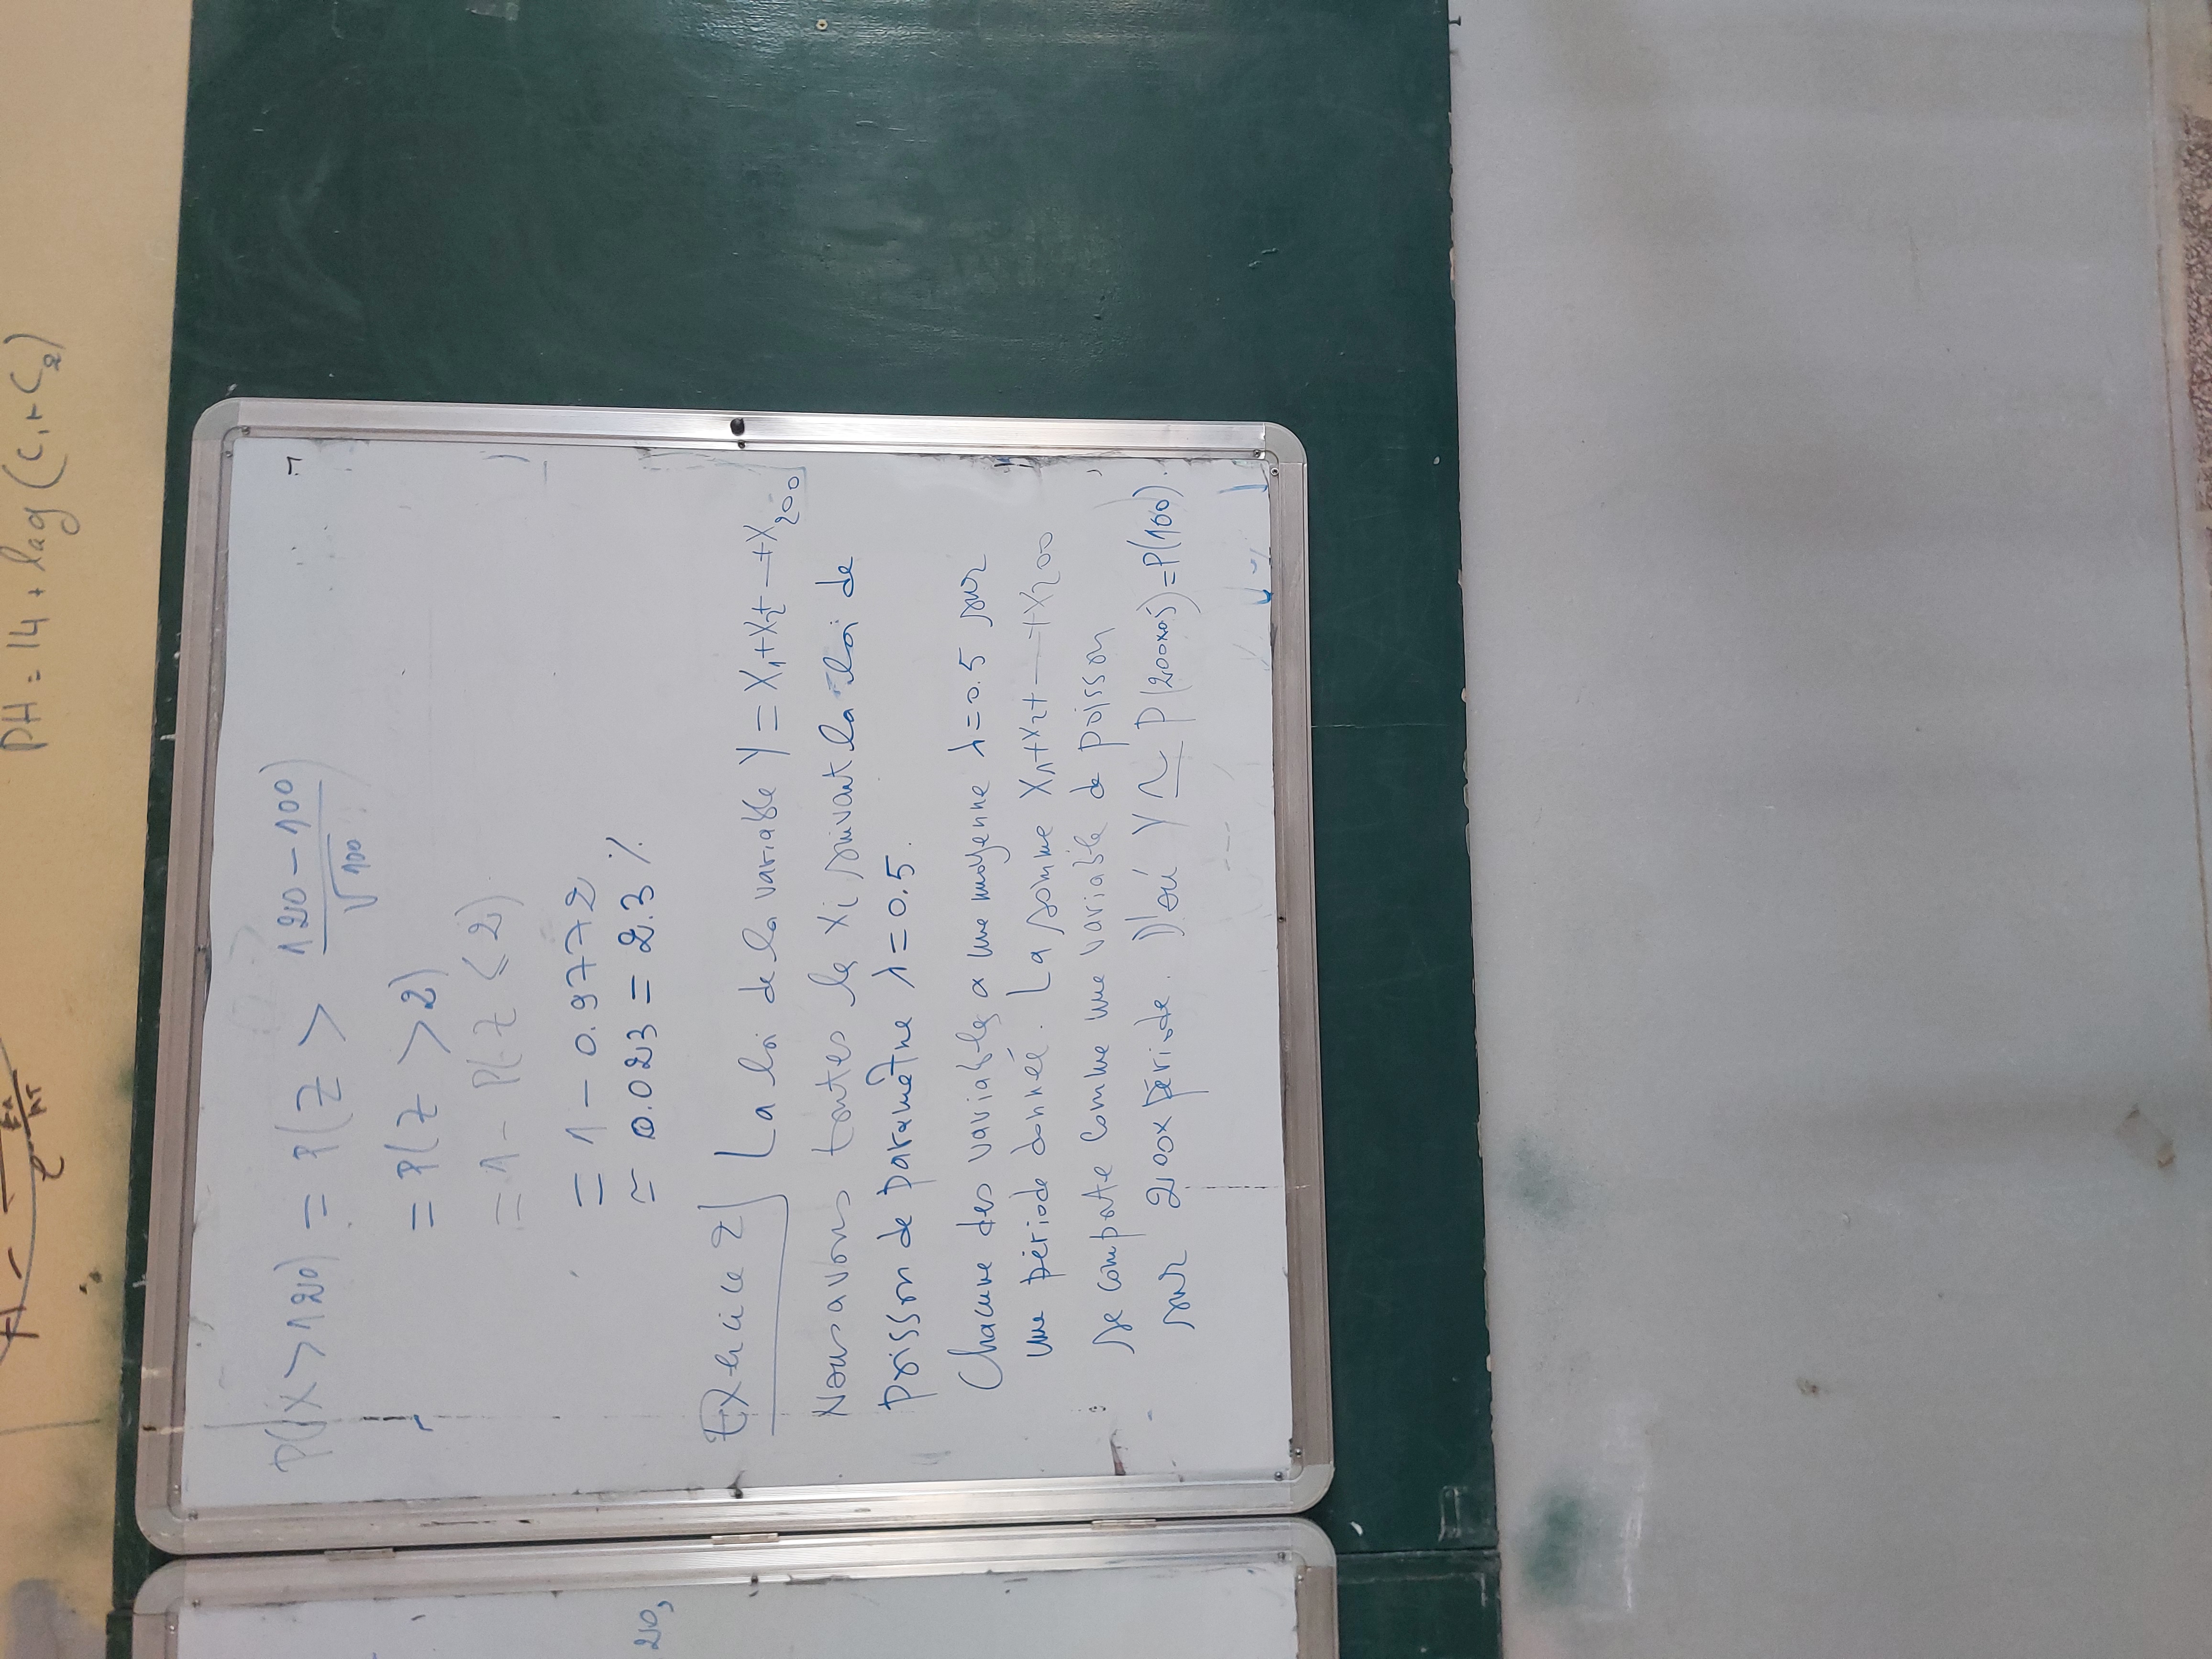 PH = 14 + log (C1 + C2)
20,
P(X > 120) = P(Z > (120 - 100) / √100)
= P(Z > 2)
= 1 - P(Z ≤ 2)
= 1 - 0.9772
≃ 0.023 = 2.3 %
Exercice 2 La loi de la variable Y = X1+X2+ — +X200
Nous avons toutes le Xi suivant la loi de
poisson de paramètre λ = 0.5.
Chacune des variables a une moyenne λ = 0.5 sur
une période donnéé. La somme X1+X2+ — +X200
se comporte comme une variable de poisson
sur 200x période. D'où Y ~ P(200x05) = P(100).